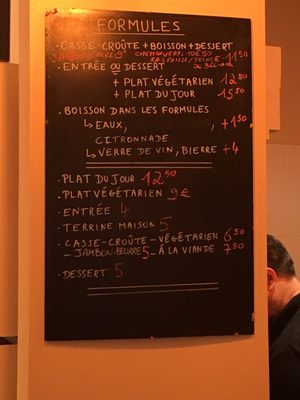 FORMULES
· CASSE-CROÛTE + BOISSON + DESSERT
11⁵⁰
· ENTRÉE OU DESSERT
+ PLAT VÉGÉTARIEN 12⁵⁰
+ PLAT DU JOUR 15⁵⁰
· BOISSON DANS LES FORMULES
↳ EAUX, +1⁵⁰
CITRONNADE
↳ VERRE DE VIN, BIERRE +4
· PLAT DU JOUR 12⁵⁰
· PLAT VÉGÉTARIEN 9€
· ENTRÉE 4
· TERRINE MAISON 5
· CASSE-CROÛTE - VÉGÉTARIEN 6⁵⁰
- JAMBON-BEURRE 5 - À LA VIANDE 7⁵⁰
· DESSERT 5